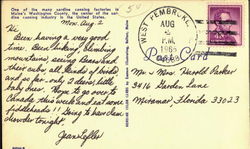 One of the many sardine canning factories in
Maine's Washington County, the center of the sar-
dine canning industry in the United States.
Mon. Aug 2
Hi
Been having a very good
time. Been hiking, climbing
mountains seeing Bears and
their cubs, all kinds of birds,
and so far only 2 deers, little
baby ones. Hope to go over to
Canada this week and eat some
fiddleheads!! Going to have clam
chowder tonight.
WEST PEMBROKE,
AUG
2
P.M.
1965
Post Card
Mr & Mrs. Harold Parker
3416 Garden Lane
Miramar Florida 33023